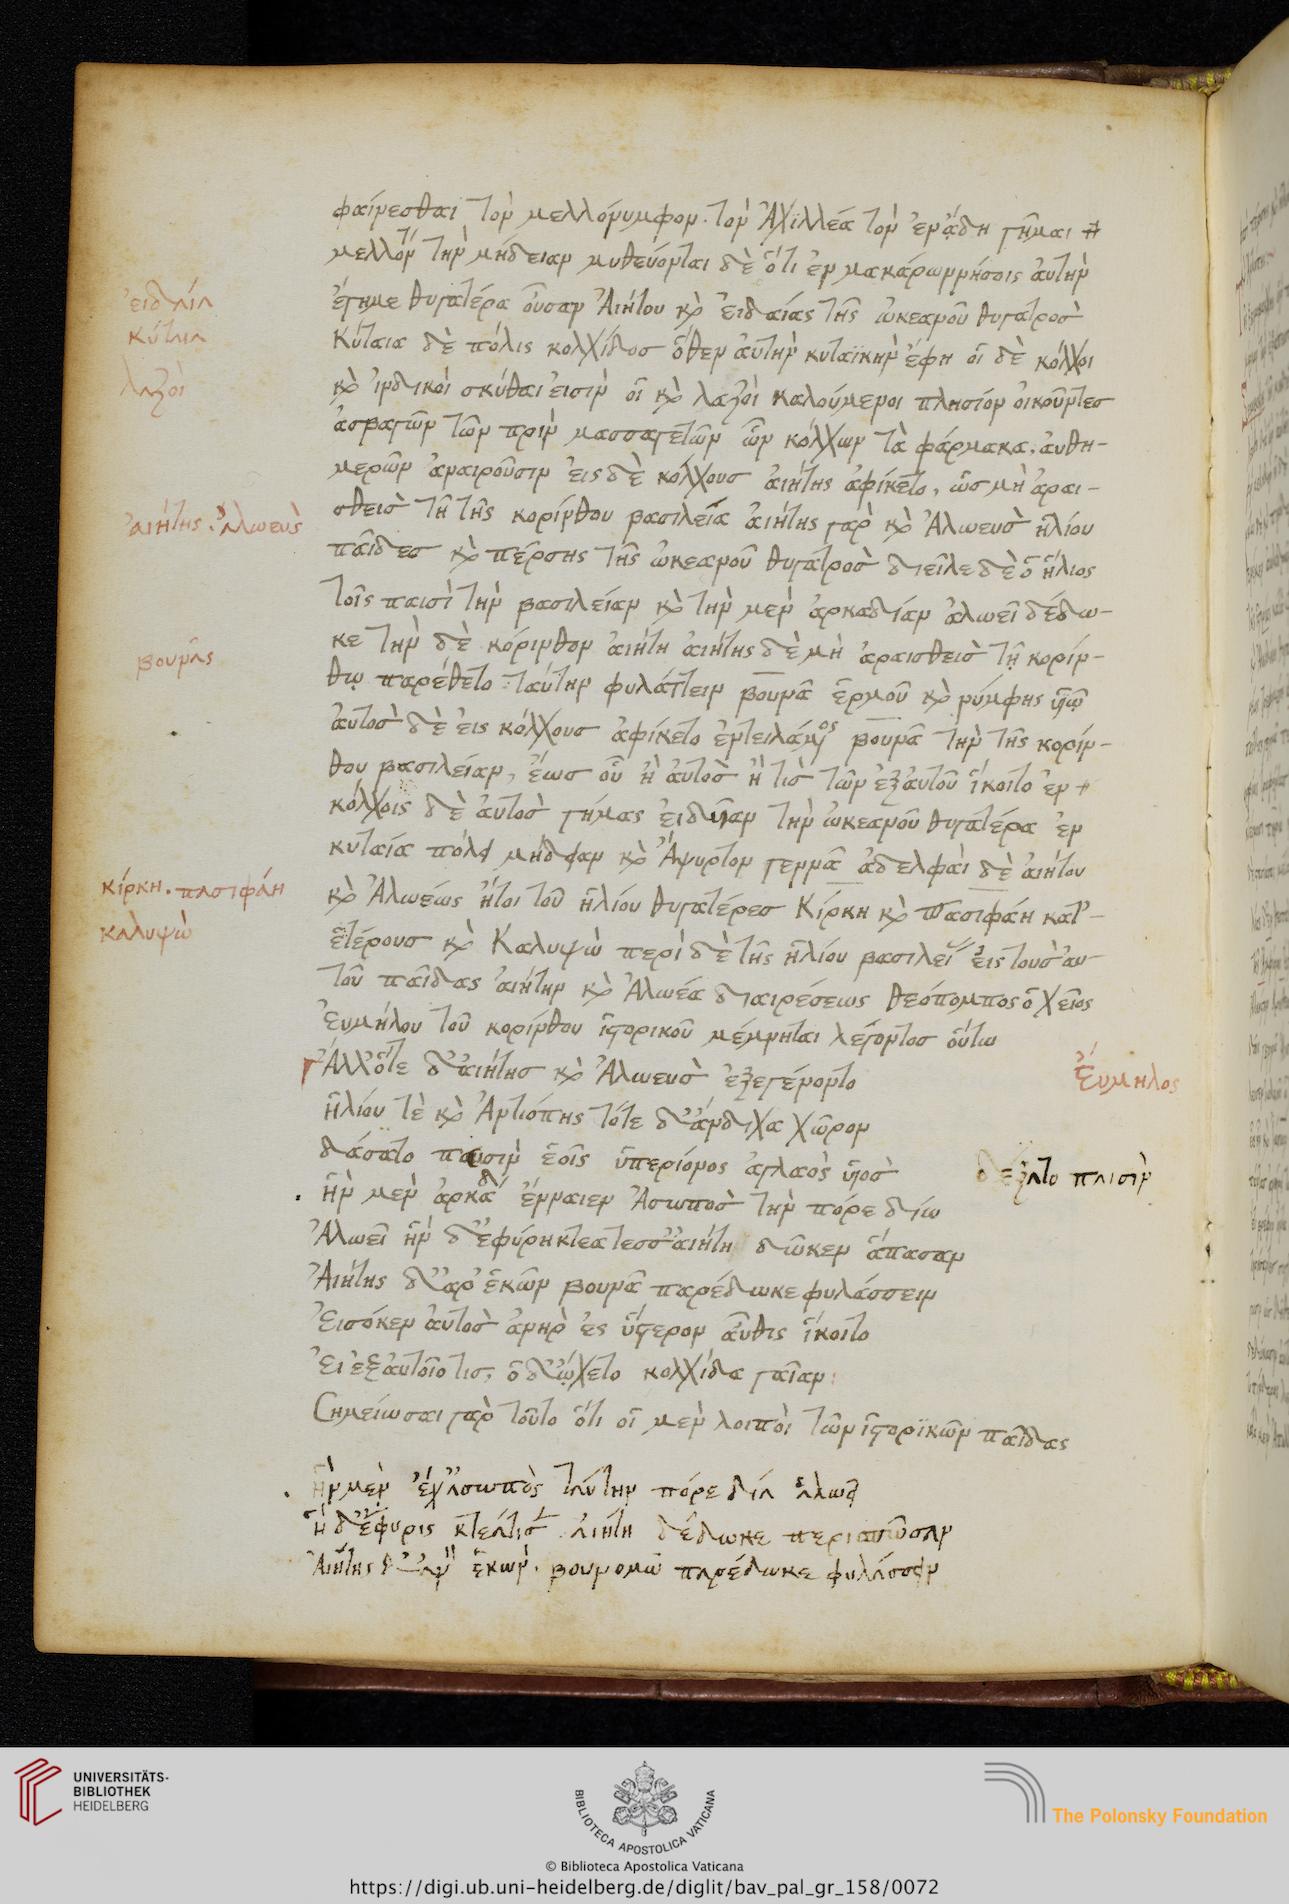 φαίνεσθαι τὸν μελλόνυμφον. τὸν Ἀχϊλλέα τὸν ἐν ᾅδη γῆμαι
μέλλοντα τὴν μήδειαν μυθεύονται δὲ ὅτι ἐν μακάρων νήσοις ἀυτὴν
ἔγημε θυγατέρα οὖσαν Ἀιήτου κὶ Ἐιδαίας τῆς ὠκεανοῦ θυγατροσ
Κύταια δὲ πόλις κολχίδοσ ὅθεν ἀυτὴν κυταϊκὴν ἔφη οἱ δὲ κόλχοι
κὶ ἰνδικοὶ σκύθαι ἐισὶν οἱ κὶ λαζοὶ καλούμενοι πλησίον οἰκοῦντεσ
ἀσβαγῶν τῶν πρὶν μασσαγετῶν ὧν κόλχων τὰ φάρμακα. ἀυθη-
μερῶν ἀναιροῦσιν ἐις δὲ κόλχους ἀιήτης ἀφίκετο, ὡσ μὴ ἀραι-
σθεισ τῆ τῆς κορίνθου βασιλεία ἀιήτης γὰρ κὶ Ἀλωευσ ἡλίου
παῖδεσ κὶ πέρσης τῆς ὠκεανοῦ θυγατροσ διεῖλε δὲ ὁ ἥλιος
τοῖς παισὶ τὴν βασιλείαν κὶ τὴν μεν ἀρκαδίαν ἀλωεῖ δέδω-
κε τὴν δὲ κόρινθον ἀιήτη ἀιήτης δὲ μὴ ἀραισθεισ τῇ κορίν-
θῳ παρέθετο ταύτην φυλάττειν βουνᾶ ἑρμοῦ κὶ νύμφης ὑιῷ
ἀυτοσ δὲ ἐις κόλχους ἀφίκετο ἐντειλάμενος βουνᾶ τὴν τῆς κορίν-
θου βασιλείαν, ἕωσ οὗ ἢ ἀυτοσ ἢ τισ τῶν ἐξ ἀυτοῦ ἵκοιτο ἐν
κόλχοις δὲ ἀυτοσ γήμας ἐιδυῖαν τὴν ὠκεανοῦ θυγατέρα ἐν
κυταία πόλει μήδειαν κὶ Ἄψυρτον γεννᾶ ἀδελφαὶ δὲ ἀιήτου
κὶ Ἀλωέως ἤτοι τοῦ ἡλίου θυγατέρεσ Κίρκη κὶ πασιφάη κατ'-
ἑτέρουσ κὶ Καλυψὼ περὶ δὲ τῆς ἡλίου βασιλείας ἐις τοὺσ ἀυ-
τοῦ παῖδας ἀιήτην κὶ Ἀλωέα διαιρέσεως θεόπομπος ὁ χεῖος
Ἐυμήλου τοῦ κορίνθου ἱστορικοῦ μέμνηται λέγοντοσ οὕτω
Ἀλλ' ὅτε δ' ἀιήτησ κὶ Ἀλωευσ ἐξεγένοντο
ἡλίου τὲ κὶ Ἀντιόπης τότε δ' ἄνδιχα χῶρον
δάσατο παισὶν ἑοῖς ὑπερίονος ἀγλαὸς ὑιοσ
ἣν μεν ἀρκαδ ἔνναιεν Ἀσωποσ τὴν πόρε δίω
Ἀλωεῖ ἣν δ' ἐφύρη κτεατεσσ' ἀιήτη δῶκεν ἅπασαν
Ἀιήτης δ' ἀρ' ἑκὼν βουνᾶ παρέδωκε φυλάσσειν
Ἐισόκεν ἀυτοσ ἀνὴρ ἐς ὕστερον ἆυθις ἵκοιτο
Ἐι ἐξ ἀυτοῖο τισ, ὁ δ' ᾤχετο κολχίδα γαῖαν
Σημείωσαι γὰρ τοῦτο ὅτι οἱ μεν λοιποὶ τῶν ἱστορϊκῶν παῖδας
ἣν μεν ἀσωπὸς ταύτην πόρε δία ἀλωεῖ
ἡ δ' ἔφυρις κτεάτισ ἀιήτη δέδωκε περιοῦσαν
Ἀιήτης δ' ἑκὼν. βουνομῶ παρέδωκε φυλάσσειν
ἐιδαία
κύταια
λαζοὶ
ἀιήτης. ἀλωευὸ
βουνας
κίρκη. πασιφάη
καλυψὼ
Ἔυμηλος
δείξατο παισὶν
UNIVERSITÄTS-
BIBLIOTHEK
HEIDELBERG
BIBLIOTECA APOSTOLICA VATICANA
The Polonsky Foundation
© Biblioteca Apostolica Vaticana
https://digi.ub.uni-heidelberg.de/diglit/bav_pal_gr_158/0072